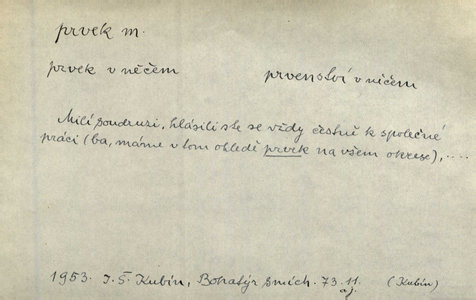 prvek m.
prvek v něčem
prvenství v něčem
Milí soudruzi, hlásili ste se vždy čestně k společné
práci (ba, máme v tom ohledě prvek na všem okrese), ....
1953. J. Š. Kubín, Bohatýr Smích. 73.11 (Kubín)
aj.